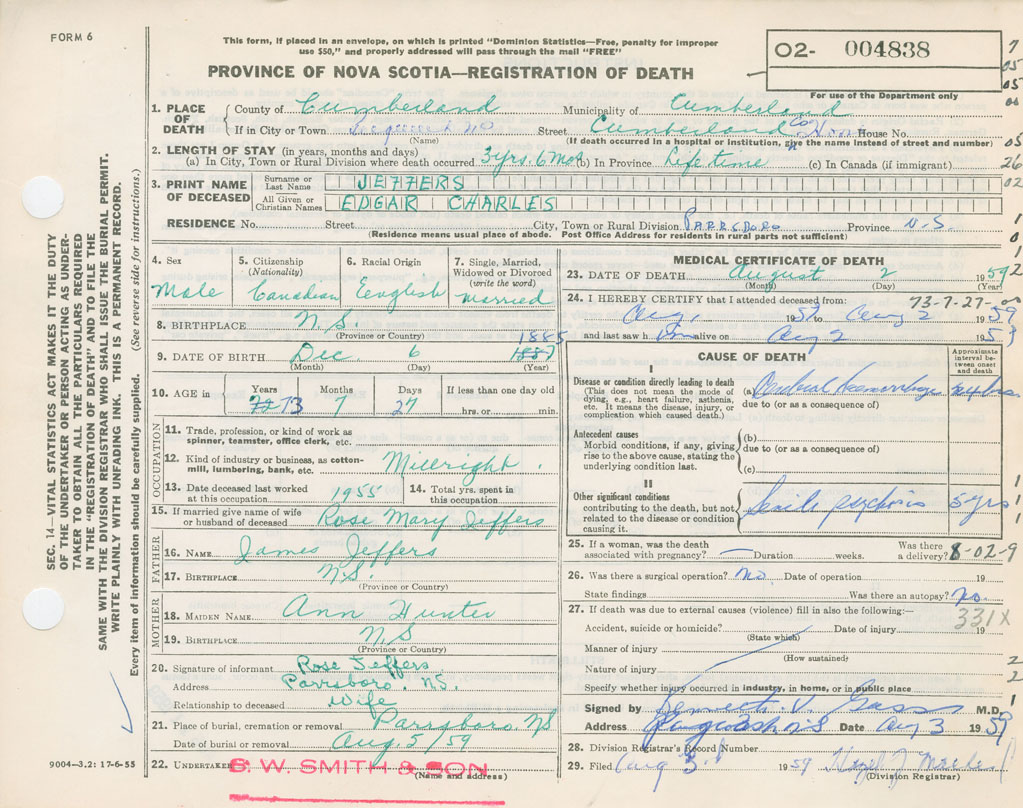 FORM 6
This form, if placed in an envelope, on which is printed "Dominion Statistics—Free, penalty for improper
use $50," and properly addressed will pass through the mail "FREE"
O2- 004838
PROVINCE OF NOVA SCOTIA—REGISTRATION OF DEATH
For use of the Department only
7
05
05
05
26
02
1. PLACE OF DEATH
County of Cumberland Municipality of Cumberland
If in City or Town Street Cumberland Co. House No.
(Name) (If death occurred in a hospital or institution, give the name instead of street and number)
2. LENGTH OF STAY (in years, months and days)
(a) In City, Town or Rural Division where death occurred 3 yrs. 6 mos (b) In Province Life time (c) In Canada (if immigrant)
3. PRINT NAME OF DECEASED
Surname or Last Name JEFFERS
All Given or Christian Names EDGAR CHARLES
RESIDENCE No. Street City, Town or Rural Division PARRSBORO Province N.S.
(Residence means usual place of abode. Post Office Address for residents in rural parts not sufficient)
4. Sex
Male
5. Citizenship
(Nationality)
Canadian
6. Racial Origin
English
7. Single, Married,
Widowed or Divorced
(write the word)
Married
8. BIRTHPLACE N.S.
(Province or Country)
1885
9. DATE OF BIRTH Dec 6 1887
(Month) (Day) (Year)
10. AGE in
Years Months Days If less than one day old
73 7 27 hrs. or min.
OCCUPATION
11. Trade, profession, or kind of work as
spinner, teamster, office clerk, etc.
12. Kind of industry or business, as cotton-
mill, lumbering, bank, etc. Millright.
13. Date deceased last worked
at this occupation 1955
14. Total yrs. spent in
this occupation
15. If married give name of wife
or husband of deceased Rose Mary Jeffers
FATHER
16. NAME James Jeffers
17. BIRTHPLACE N.S.
(Province or Country)
MOTHER
18. MAIDEN NAME Ann Hunter
19. BIRTHPLACE N.S
(Province or Country)
20. Signature of informant Rose Jeffers
Address Parrsboro. N.S.
Relationship to deceased Wife
21. Place of burial, cremation or removal Parrsboro, N.S
Date of burial or removal Aug. 5/59
22. Undertaker S. W. SMITH & SON
(Name and address)
MEDICAL CERTIFICATE OF DEATH
23. DATE OF DEATH August 2 1959
(Month) (Day) (Year)
24. I HEREBY CERTIFY that I attended deceased from: 73-7-27-00
Aug. 1957 to Aug 2 1959
and last saw him alive on Aug 2 1959
CAUSE OF DEATH
Approximate
interval be-
tween onset
and death
I
Disease or condition directly leading to death
(This does not mean the mode of
dying, e.g., heart failure, asthenia,
etc. It means the disease, injury, or
complication which caused death.)
(a) Cerebral hemorrhage 24 hrs
due to (or as a consequence of)
Antecedent causes
Morbid conditions, if any, giving
rise to the above cause, stating the
underlying condition last.
(b)
due to (or as a consequence of)
(c)
II
Other significant conditions
contributing to the death, but not
related to the disease or condition
causing it.
Senile psychosis 5 yrs
25. If a woman, was the death
associated with pregnancy? Duration weeks.
Was there
a delivery? 8-02-9
26. Was there a surgical operation? No Date of operation 19
State findings Was there an autopsy? No.
27. If death was due to external causes (violence) fill in also the following:—
331X
Accident, suicide or homicide? Date of injury 19
(State which)
Manner of injury
(How sustained)
Nature of injury
Specify whether injury occurred in industry, in home, or in public place
Signed by Kenneth V. Gass M.D.
Address Pugwash N S Date Aug 3 1959
28. Division Registrar's Record Number
29. Filed Aug 3 1959 Hazel J
(Division Registrar)
SEC. 14—VITAL STATISTICS ACT MAKES IT THE DUTY
OF THE UNDERTAKER OR PERSON ACTING AS UNDER-
TAKER TO OBTAIN ALL THE PARTICULARS REQUIRED
IN THE "REGISTRATION OF DEATH" AND TO FILE THE
SAME WITH THE DIVISION REGISTRAR WHO SHALL ISSUE THE BURIAL PERMIT.
WRITE PLAINLY WITH UNFADING INK. THIS IS A PERMANENT RECORD.
Every item of information should be carefully supplied. (See reverse side for instructions.)
9004—3.2: 17-6-55